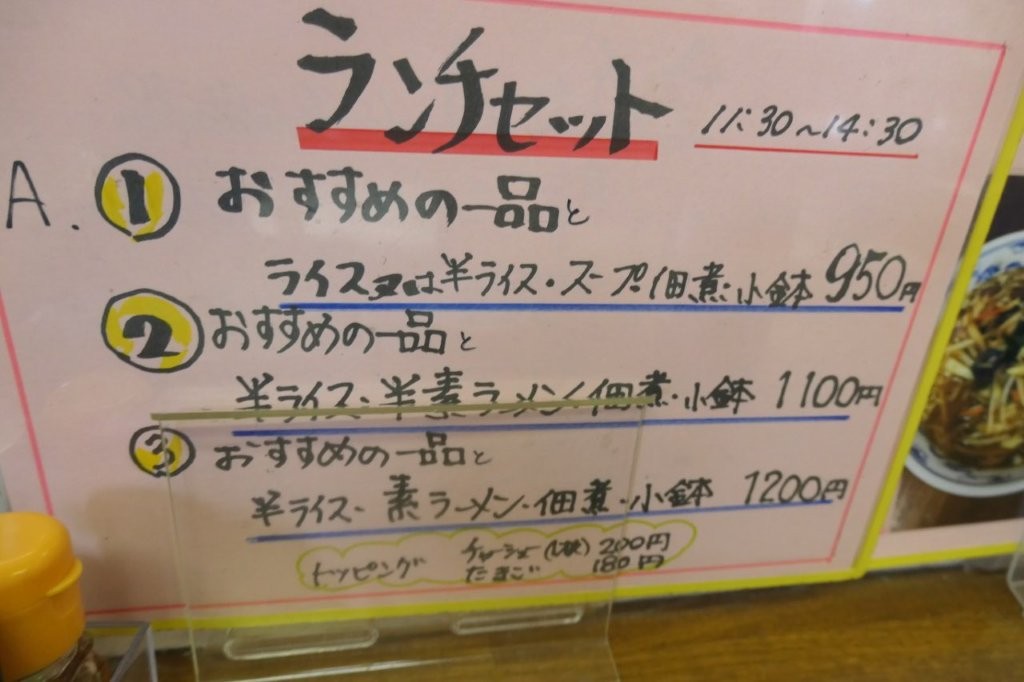 ランチセット 11:30～14:30
A. ① おすすめの一品と
ライス又は半ライス・スープ佃煮・小鉢 950円
② おすすめの一品と
半ライス・半素ラーメン佃煮・小鉢 1100円
③ おすすめの一品と
半ライス・素ラーメン・佃煮・小鉢 1200円
トッピング チャーシュー 200円
たまご 180円